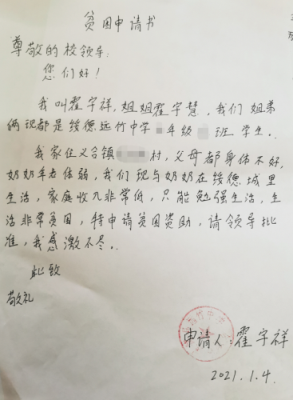 贫困申请书
尊敬的校领导:
您们好!
我叫霍宇祥,姐姐霍宇慧,我们姐弟
俩现都是绥德远竹中学 年级 班学生.
我家住义合镇 村,父母都身体不好,
奶奶年老体弱,我们现与奶奶在绥德城里
生活,家庭收入非常低,只能勉强生活,生
活非常贫困,特申请贫困资助,请领导批
准,我感激不尽.
此致
敬礼
申请人 霍宇祥
2021.1.4.